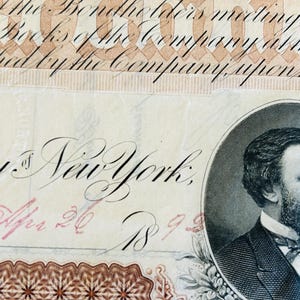 the Bondholders meeting
Books of the Company a
d by the Company upon
y of New York,
Apr 26 1892